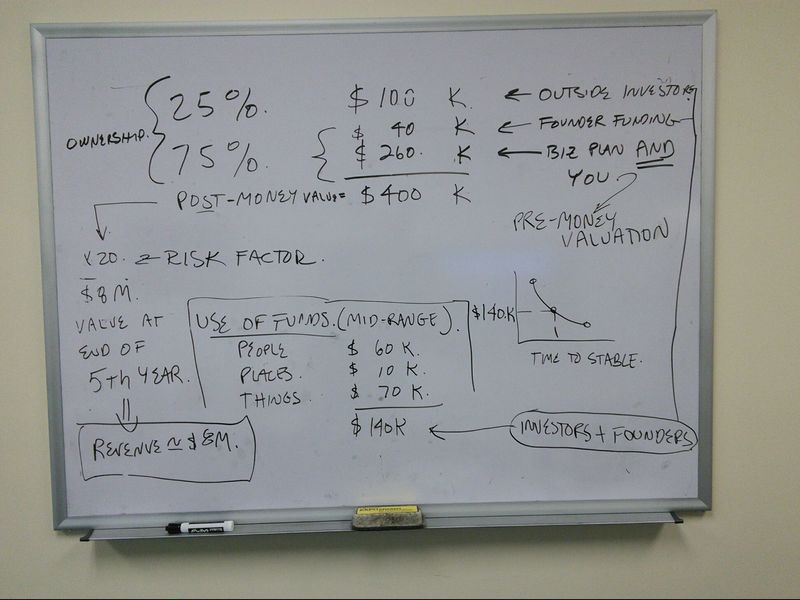 25%. $100 K ← OUTSIDE INVESTORS
OWNERSHIP. $ 40 K ← FOUNDER FUNDING
75%. $260. K ← BIZ PLAN AND
YOU
POST-MONEY VALUE = $400 K
PRE-MONEY
VALUATION
X20. ← RISK FACTOR.
$8M.
VALUE AT
END OF
5TH YEAR.
REVENUE ≈ $8M.
USE OF FUNDS. (MID-RANGE).
PEOPLE $ 60 K.
PLACES. $ 10 K.
THINGS. $ 70 K.
$140K ← INVESTORS + FOUNDERS
$140K
TIME TO STABLE.
EXPO